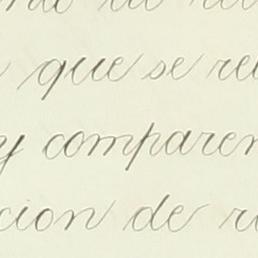 que se re
y comparen
cion de r